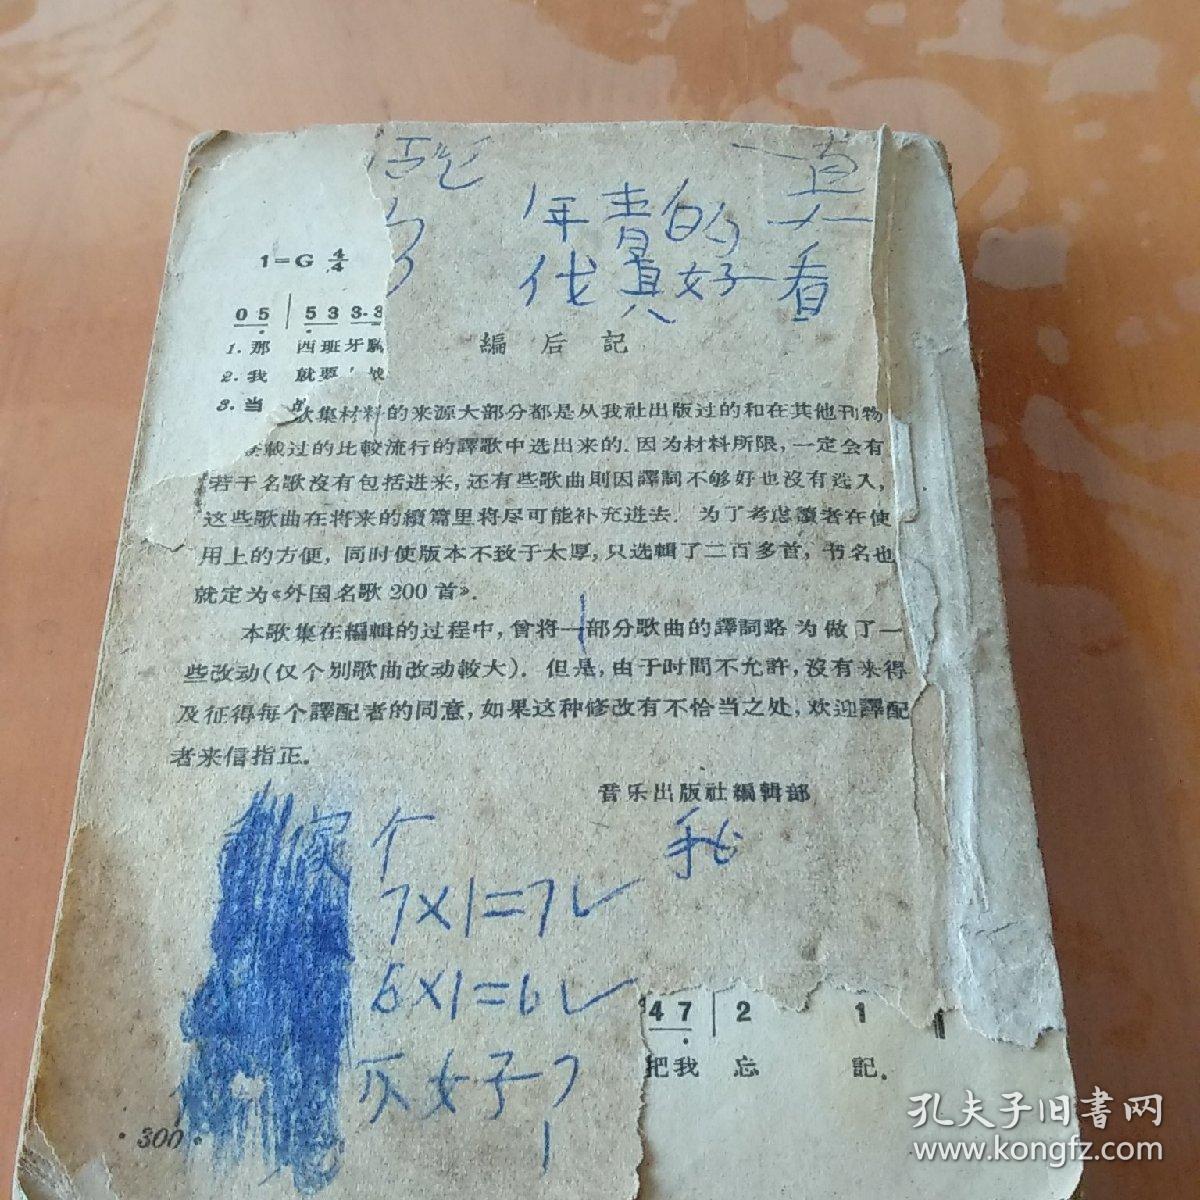 年青的 真
代真好看
1=G 4/4
0 5 | 5 3 3·3
1. 那 西班牙
2. 我 就要
3. 当
編后記
歌集材料的来源大部分都是从我社出版过的和在其他刊物
載过的比較流行的譯歌中选出来的. 因为材料所限, 一定会有
若干名歌沒有包括进来, 还有些歌曲則因譯詞不够好也沒有选入,
这些歌曲在将来的續篇里将尽可能补充进去. 为了考虑讀者在使
用上的方便, 同时使版本不致于太厚, 只选輯了二百多首, 书名也
就定为«外国名歌 200 首».
本歌集在編輯的过程中, 曾将一部分歌曲的譯詞略为做了一
些改动(仅个別歌曲改动較大). 但是, 由于时間不允許, 沒有来得
及征得每个譯配者的同意, 如果这种修改有不恰当之处, 欢迎譯配
者来信指正.
音乐出版社編輯部
家个
7×1=7
6×1=6
4 7 | 2 1
把我 忘 記.
女子
·300·
孔夫子旧书网
www.kongfz.com